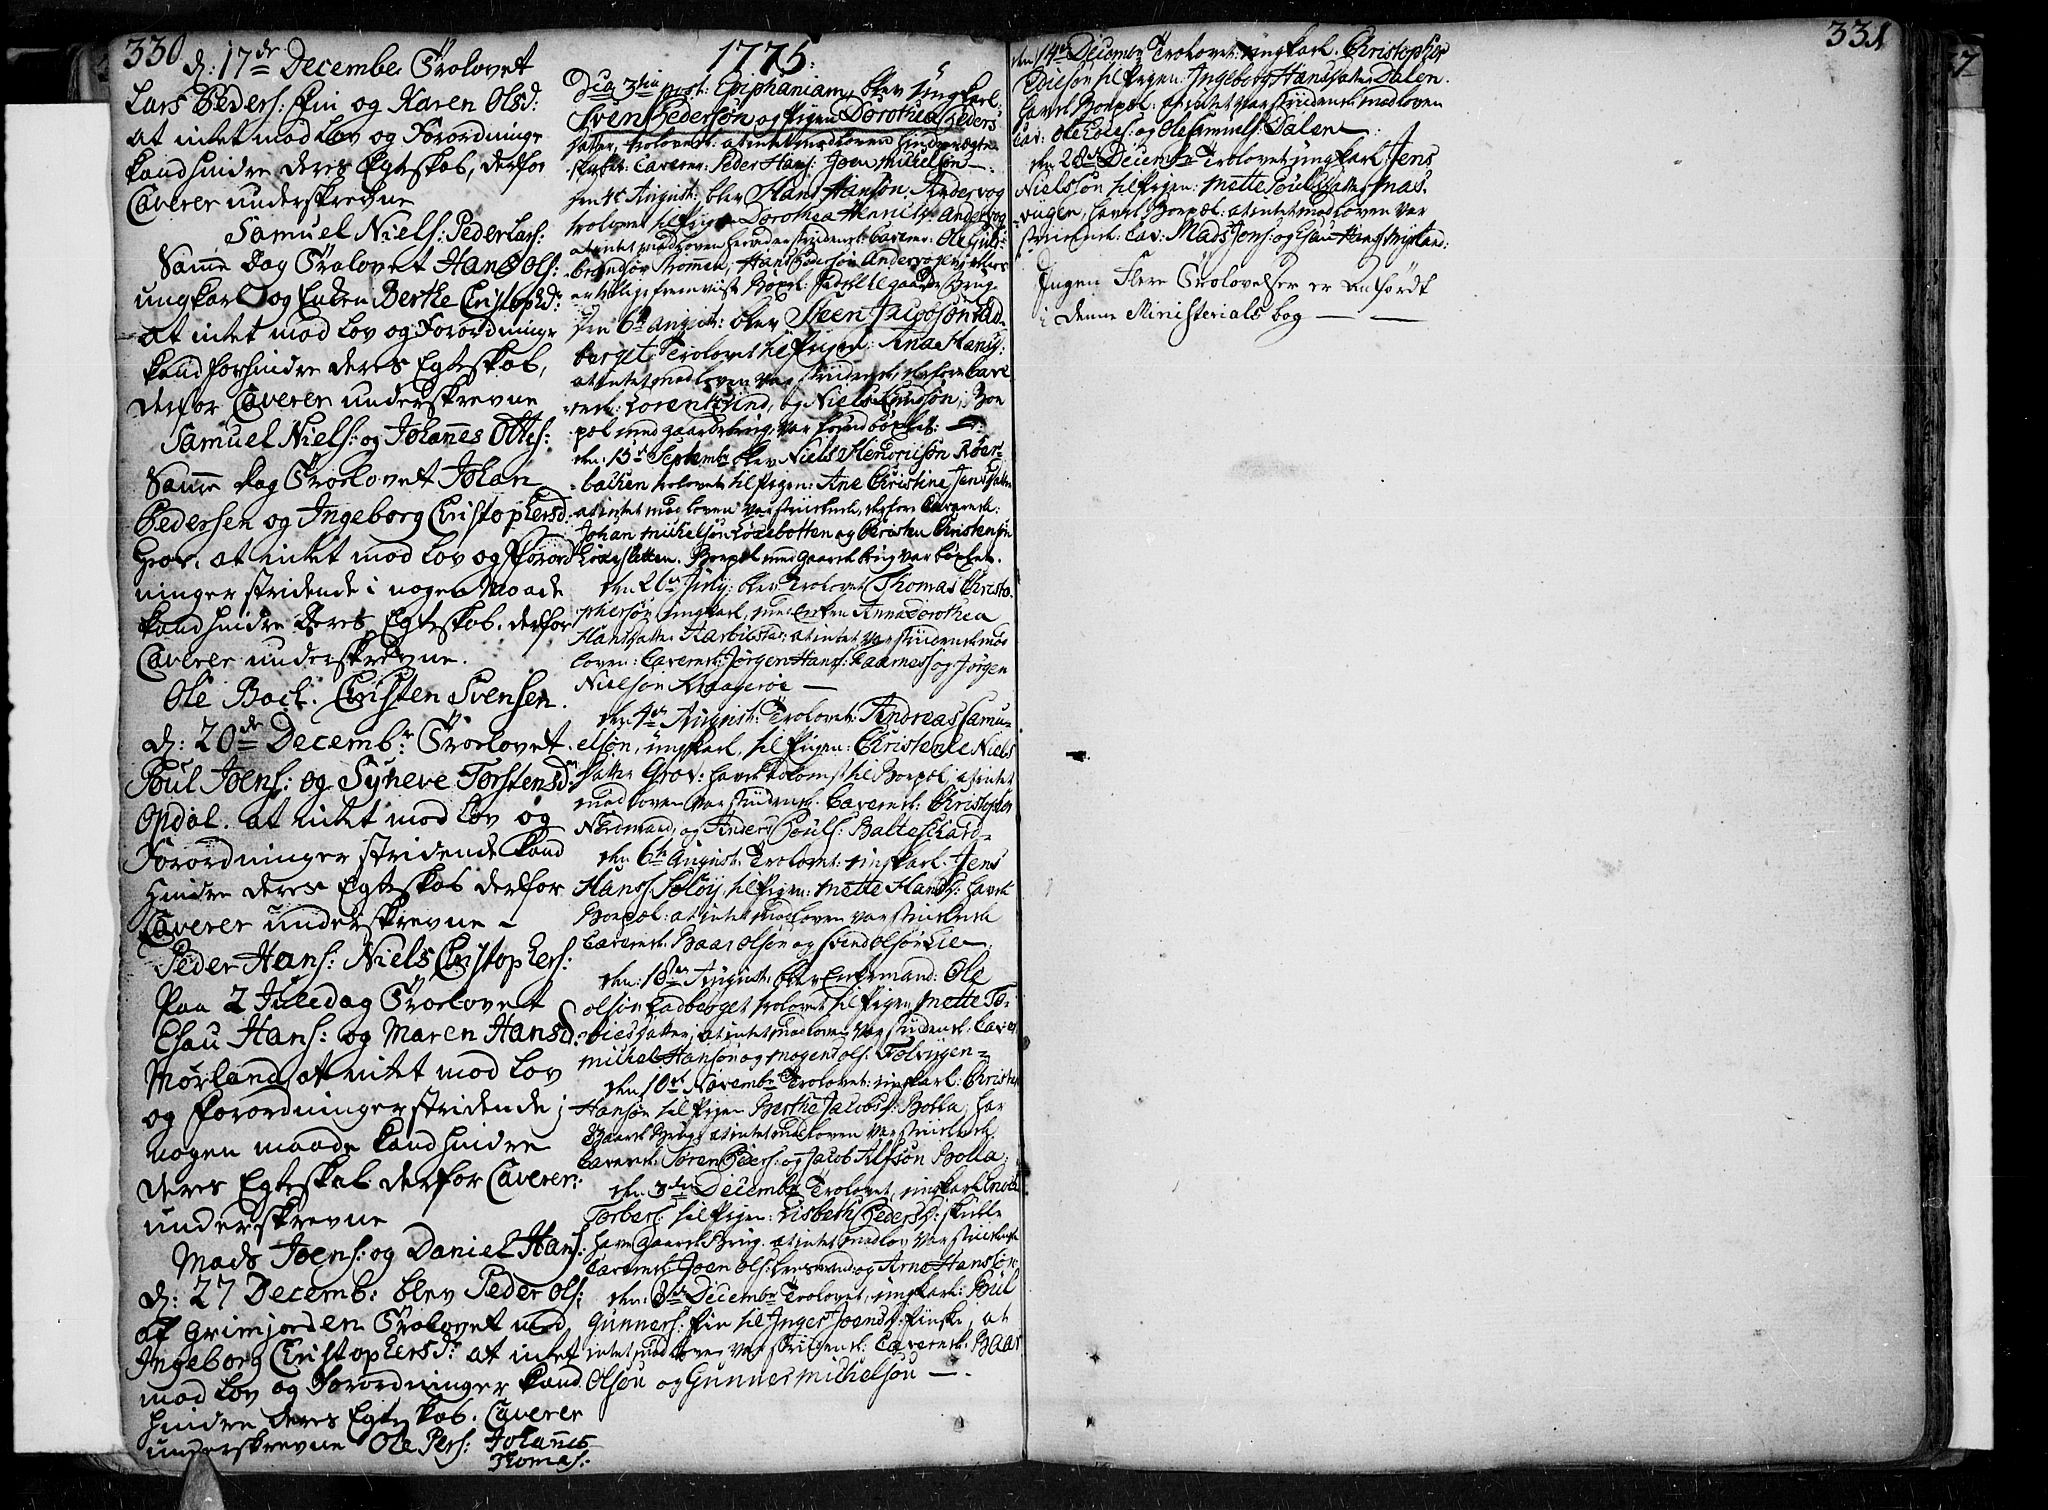 330
d: 17de December Trolovet
Lars Peders: Fin og Karen Olsd:
at intet mod Lov og Forordninge
kand hindre deres Egteskab, derfor
Caverer underskrevne
Samuel Niels: Peder Lars:
Samme Dag Trolovet Hans Ols:
ungkarl og Enken Berthe Christophd:
at intet mod Lov og Forordninge
kand forhindre deres Egteskab,
derfor Caverer underskrevne
Samuel Niels: og Johannes Ottes:
Samme dag Troelovet Johan
Pedersen og Ingeborg Christophersd:
Grov. at intet mod Lov og Forord
ninger stridende i nogen Maade
kand hindre deres Egteskab. derfor
Caverer underskrevne.
Ole Bach. Christen Svensen.
d: 20de Decembr: Troelovet
Poul Joens: og Syneve Torstensd:
Opdal. at intet mod Lov og
Forordninger stridende kand
hindre deres Egteskab derfor
Caverer underskrevne
Peder Hans: Niels Christophers:
Paa 2 Juledag Troelovet
Esau Hans: og Maren Hansd:
Mørland at intet mod Lov
og Forordninger stridende i
nogen maade kand hindre
deres Egteskab derfor Caverer
underskrevne
Mads Joens: og Daniel Hans:
d: 27 Decemb: blev Peder Ols:
af Grimjorden Trolovet med
Ingeborg Christophersd: at intet
mod Lov og Forordninger kand
hindre deres Egteskab. Caverer
underskrevne Ole Pers: Johannes
Thomas:
1775.
Dca 3tia post: Epiphaniam, blev ungkarl:
Sven Pedersøn og Pigen Dorothea Peders
datter, trolovet: at intet mod Loven hindrer Egte
skabet: Caverer: Peder Hans: Joen Michelsøn
August: blev Hans Hansøn. Andervog
trolovet til Pigen Dorothea Henrichs: Andervog
at intet mod Loven herved er stridende: Caverer: Ole Gul
brandsøn Strømmen, Hans Pedersøn Andervogen
den 6te August: blev Steen Jacobsøn Lad
berget Trolovet til Pigen: Ana Hansd:
at intet mod Loven var stridende, derfore Cave
rede: Lorentz Lind, og Niels Knudsøn, Boe
pæl med gaardebrug, var foreud bøxlet:
den: 15de Septembr blev Niels Hendricsøn Røer
bakken trolovet til Pigen: Ane Christine Jensdatter
at intet mod Loven var stridende, derfore Caverede:
Johan Michelsøn Lødebotten og Christen Christensøn
Lødesletten. Boepæl med Gaards brug var bøxlet.
den 26de Juny: blev Trolovet Thomas Christo
phersøn ungkarl, med Enken Anna Dorothea
Hansdatter at intet var stridende mod
Loven: Caverede: Jørgen Hans: Faarnes og Jørgen
Nielsøn Kraagerøe
den 4de August: Trolovet: Andreas Samu
elsøn, ungkarl, til Pigen: Christence Niels
datter Grov: Boepæl, at intet
mod Loven var stridende. Caverede: Christopher
Nordmand, og Anders Pouls: Balteschard
den 6te August: Trolovet: ungkarl: Jens
Hans: Soløy, til Pigen: Mette Hansd: havde
Boepæl: at intet mod Loven var stridende
Caverede: Baar Olsøn og Svend Olsøn Lie
den: 18de August: blev Enkemand: Ole
Olsøn Ladberget trolovet til Pigen Mette To
biesdatter, at intet mod Loven var stridende: Caver:
Michel Hansøn og Mogens Ols: Tolvigen
den 10de Novembr Trolovet: ungkarl: Christen
Hansøn til Pigen Berthe Jacobs: Bolla, har
Gaards brug, at intet mod Loven var stridende
Caverede: Søren Peders: og Jacob Alfsøn Bolla,
den: 3de Decembr Trolovet, ungkarl
Torbers: til Pigen: Lisbeth Pedersd: skulle
have Gaards brug. at intet mod Lov var stridende
Caverede: Joen Ols: og Arne Hansøn
den: 8de Decembr Trolovet, ungkarl: Poul
Gunners: Fin til Inger Joensd: Finske, at
intet mod Loven var stridende: Caverede: Baar
Olsøn og Gunner Michelsøn
331
den 14de Decembr Trolovet: ungkarl. Christopher
Edisøn til Pigen: Ingeborg Hansdatter Dalen.
havde Boepæl: at intet var stridende mod Loven
Cav: Ole Edies: og Ole Samuels: Dalen
den 28de Decembr Trolovet: ungkarl: Jens
Nielssøn til Pigen: Mette Poulsdatter Mas
viigen, havde Boepæl: at intet mod Loven var
stridende: Cav: Mads Jons: og Esau Hans:
Ingen Flere Trolovelser er anførdt
i Denne Ministerials bog